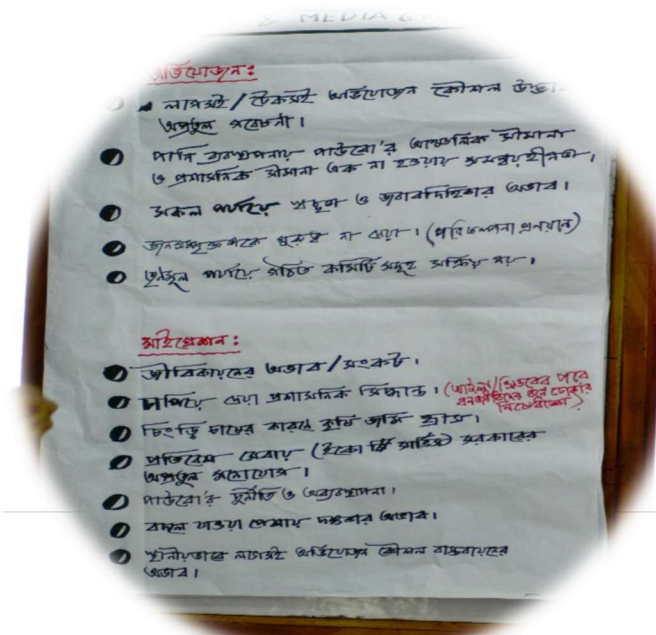 & MEDIA
অভিযোজন:
লাগসই / টেকসই অভিযোজন কৌশল উদ্ভা-
অপ্রতুল গবেষনা।
পানি ব্যবস্থাপনায় পাউবো'র আঞ্চলিক সীমানা
ও প্রশাসনিক সীমানা এক না হওয়ায় সমন্বয়হীনতা,
সকল পর্যায়ে স্বচ্ছতা ও জবাবদিহিতার অভাব।
জনসম্পৃক্ততাকে গুরুত্ব না দেয়া। (পরিকল্পনা প্রনয়নে)
তৃনমূল পর্যায়ে গঠিত কমিটি সমূহ সক্রিয় নয়।
মাইগ্রেশান:
জীবিকায়নের অভাব / সংকট।
চাপিয়ে দেয়া প্রশাসনিক সিদ্ধান্ত। (আইলা/সিডরের পরে
বনজীবিদের বনে ঢোকার
নিষেধাজ্ঞা)
চিংড়ি চাষের কারনে কৃষি জমি হ্রাস।
প্রতিবেশ সেবায় (ইকো সি সার্ভিস) সরকারের
অপ্রতুল মনোযোগ।
পাউবো'র দুর্নীতি ও অব্যবস্থাপনা।
বদলে যাওয়া পেশায় দক্ষতার অভাব।
স্থানীয়ভাবে লাগসই অভিযোজন কৌশল বাস্তবায়নের
অভাব।